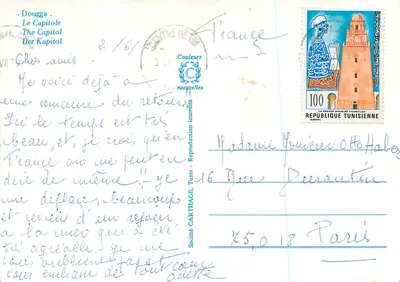 - Dougga -
Le Capitole
The Capitol
Der Kapitol
2/6/
Chers amis.
Me voici déjà à
une semaine du retour
Ici le temps est très
beau, et, je crois qu'en
France on ne peut en
dire de même !! - je
me déplace beaucoup
et reviens d'un séjour
à la mer qui a été
très agréable. je ne
vous oublie pas et
vous embrasse de tout cœur
Odette
Couleurs
C
naturelles
Société CARTHAGE, Tunis - Reproduction interdite
France
100
REPUBLIQUE TUNISIENNE
Madame Monsieur Otto
16 Rue Durantin
75.018 Paris